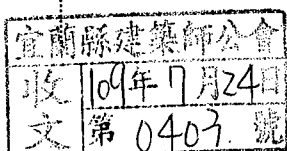 宜蘭縣建築師公會
收文
109年7月24日
第 0403 號